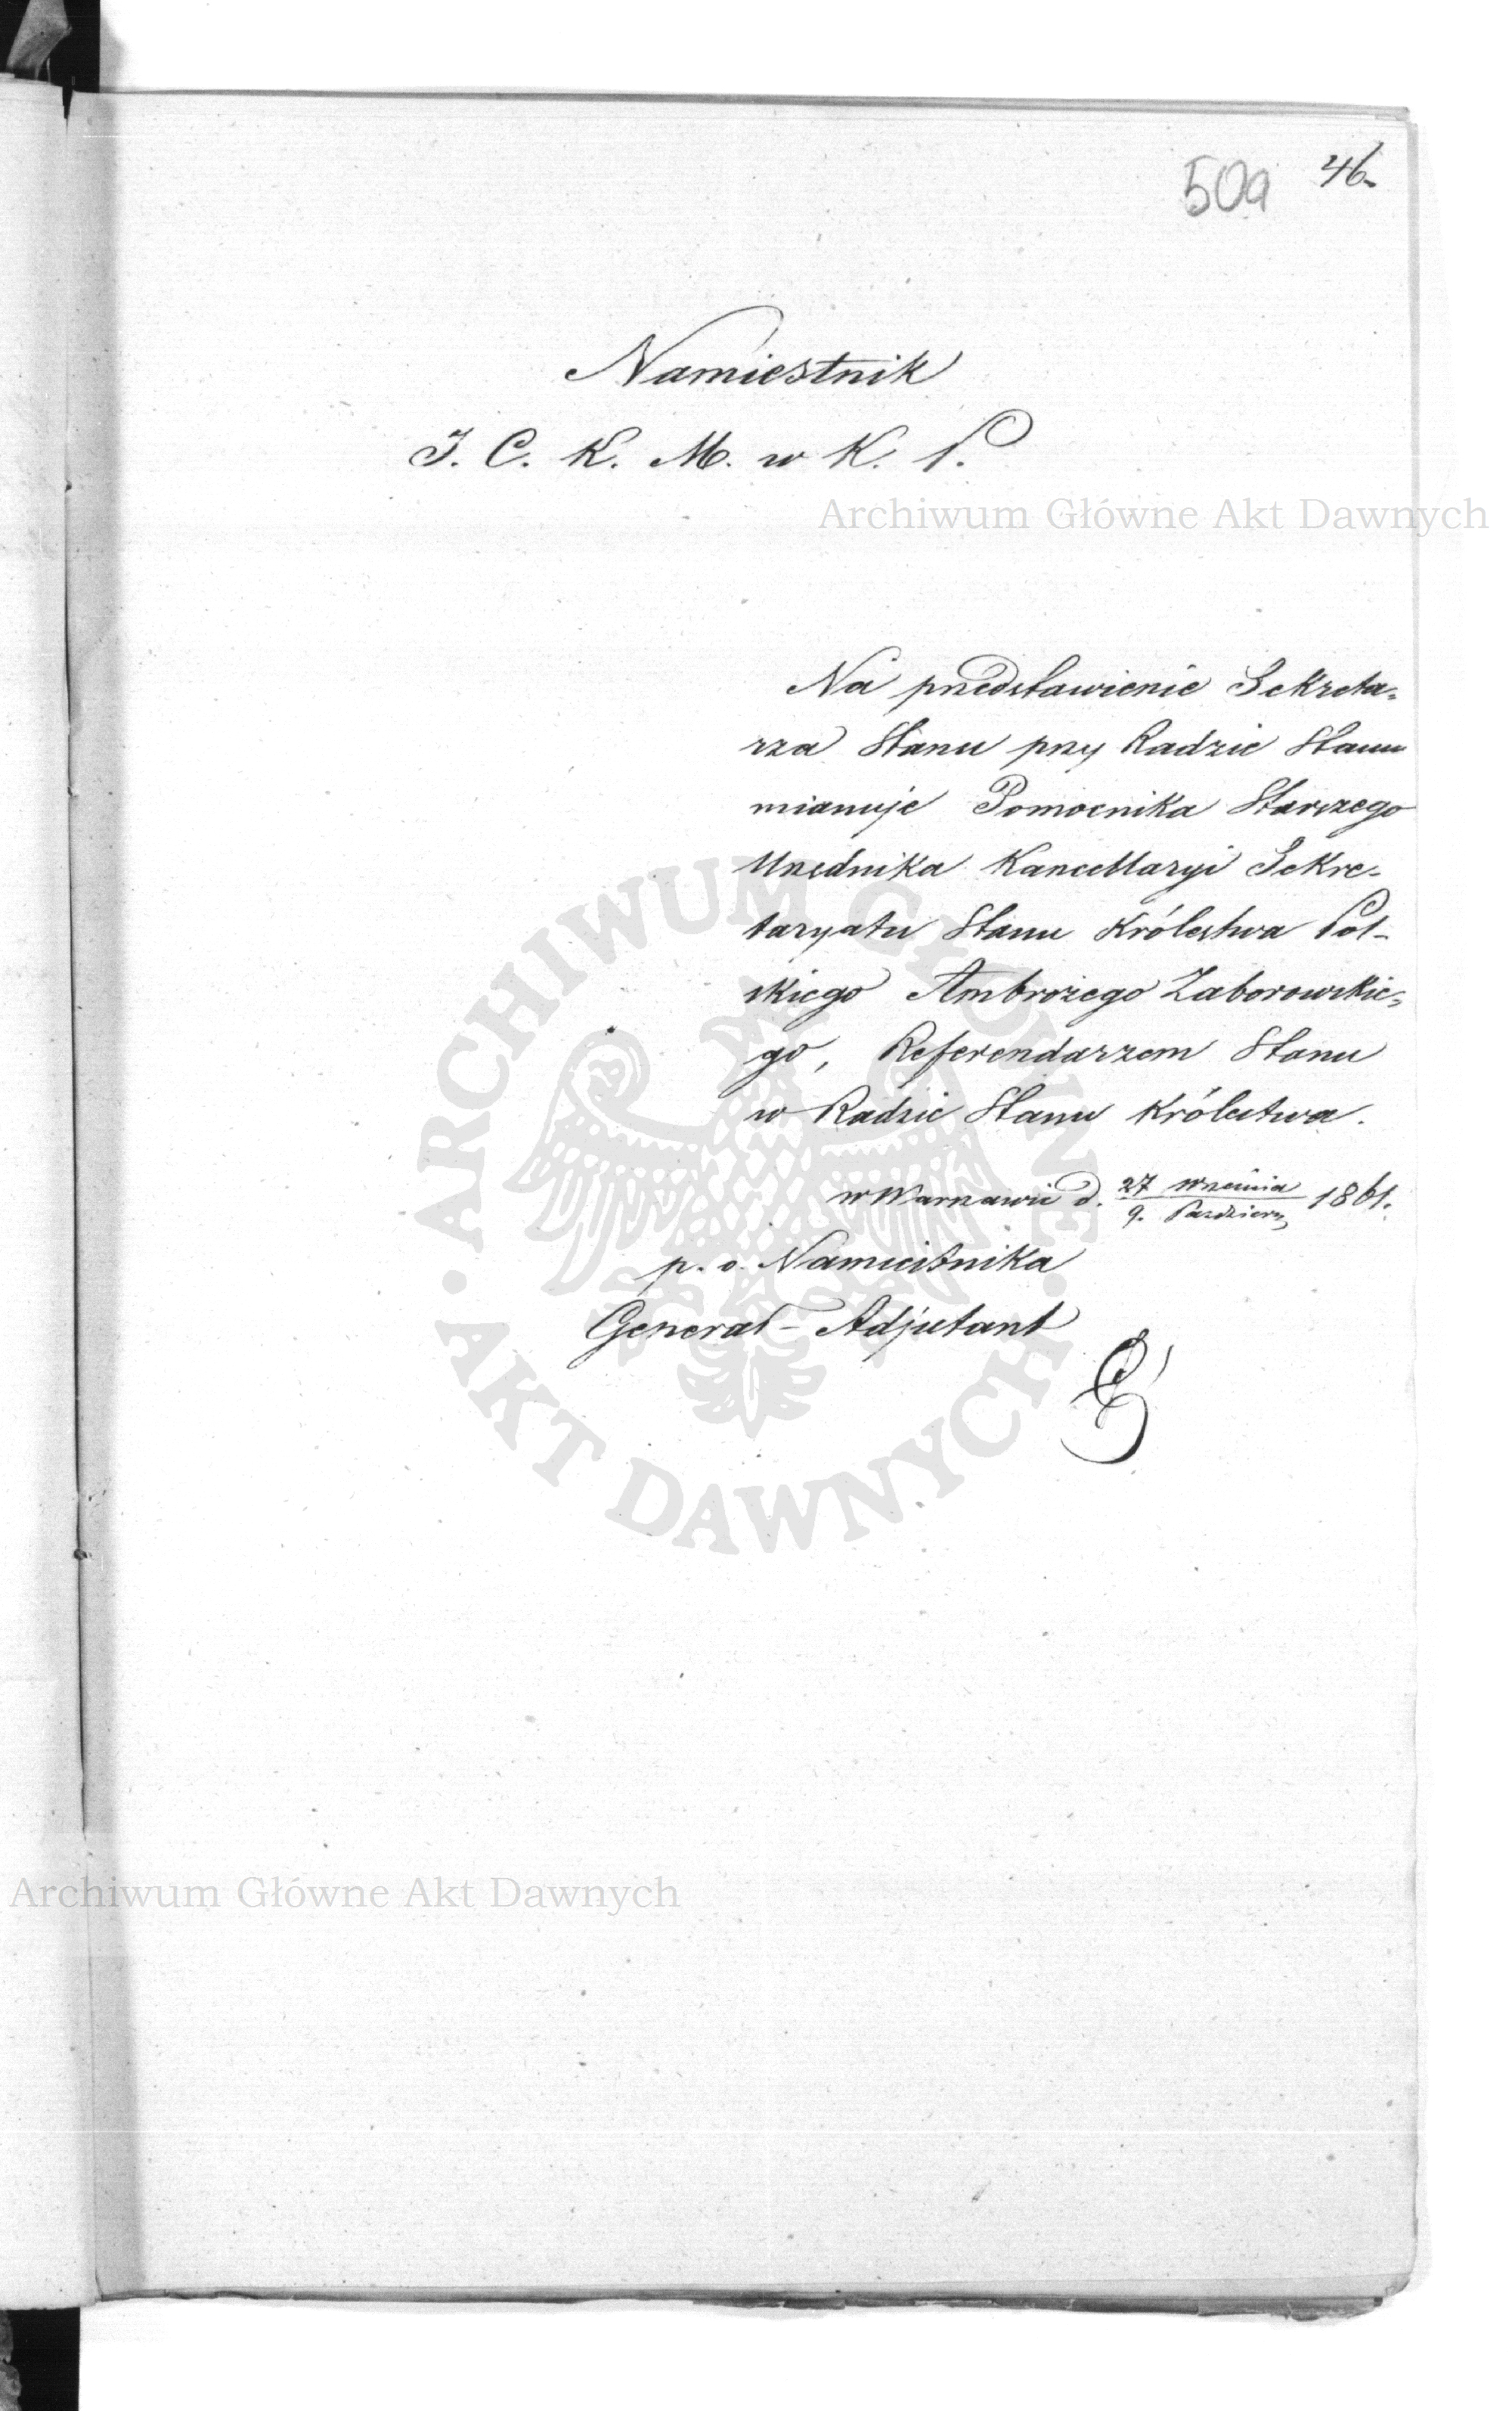 50a 46.
Namiestnik
J. C. K. M. w K. P.
Archiwum Główne Akt Dawnych
Na przedstawienie Sekreta-
rza Stanu przy Radzie Stanu
mianuje Pomocnika Starszego
Urzędnika Kancellaryi Sekre-
taryatu Stanu Królestwa Pol-
skiego Ambrożego Zaborowskie-
go, Referendarzem Stanu
w Radzie Stanu Królestwa.
w Warszawie d. 27 Września / 9. Paździer. 1861.
p. o. Namiestnika
Generał-Adjutant
ARCHIWUM GŁÓWNE AKT DAWNYCH
Archiwum Główne Akt Dawnych